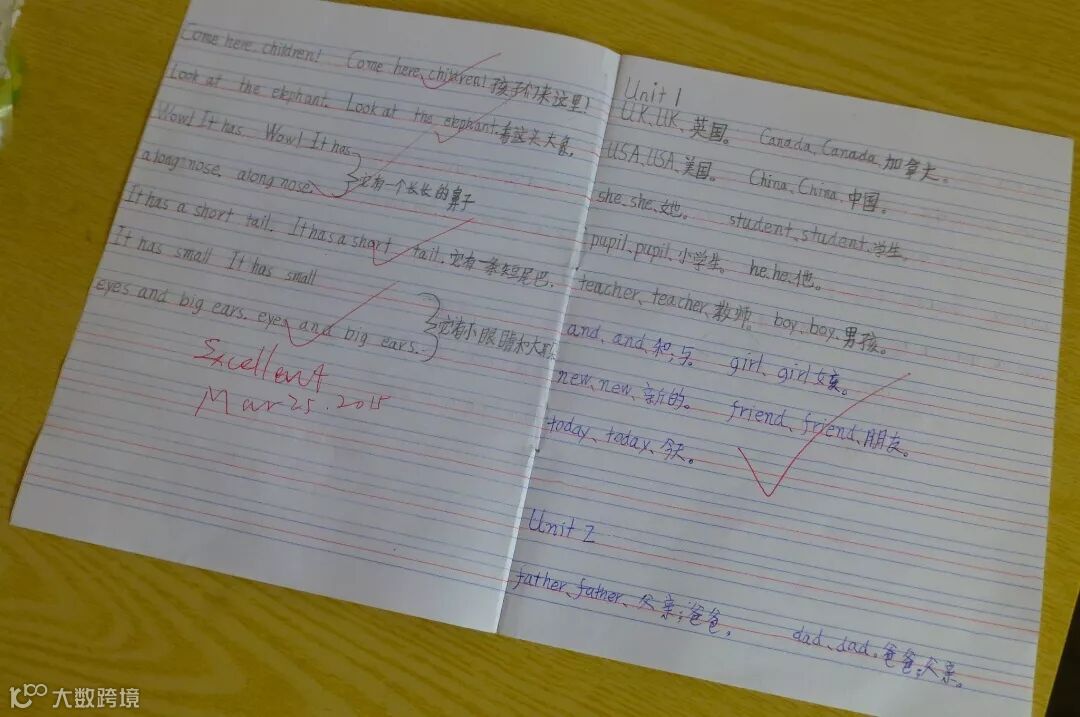 Come here, children! Come here, children! 孩子们来这里!
Look at the elephant. Look at the elephant. 看这头大象。
Wow! It has Wow! It has
a long nose. a long nose. 它有一个长长的鼻子
It has a short tail. It has a short tail. 它有一条短尾巴。
It has small It has small
eyes and big ears. eyes and big ears. 它有小眼睛和大
Excellent
Mar 25. 2015
Unit 1
UK、UK、英国。 Canada、Canada、加拿大。
USA、USA、美国。 China、China、中国。
she、she、她。 student、student、学生。
pupil、pupil、小学生。 he、he、他。
teacher、teacher、教师。 boy、boy、男孩。
and、and、和,与。 girl、girl女孩。
new、new、新的。 friend、friend、朋友。
today、today、今天。
Unit 2
father、father、父亲;爸爸。 dad、dad、爸爸;父亲。
大数跨境